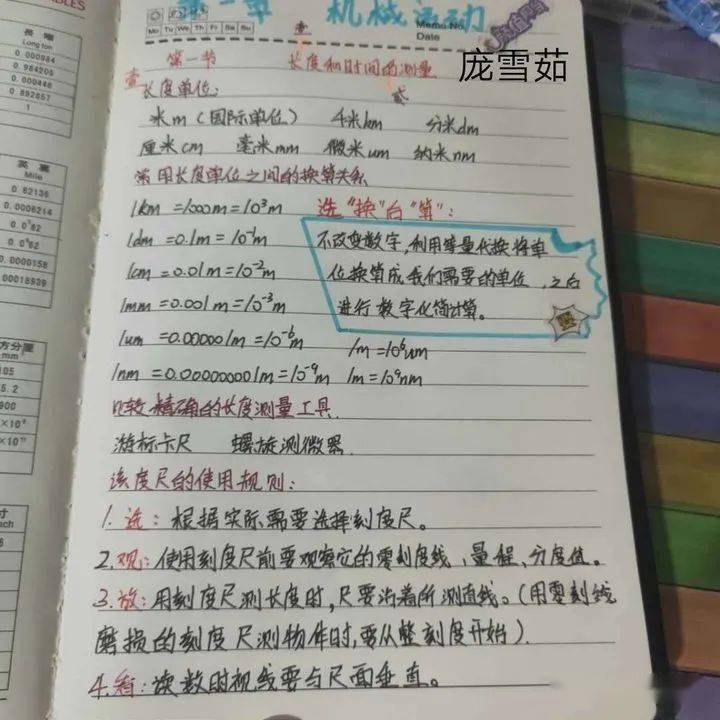 一章 机械运动
Memo No.
Mo Tu We Th Fr Sa Su
Date
第一节 长度和时间的测量
庞雪茹
长度单位:
米m(国际单位) 千米km 分米dm
厘米cm 毫米mm 微米um 纳米nm
常用长度单位之间的换算关系
1km =1000m=10³m 选"换"台"算":
1dm =0.1m=10⁻¹m 不改变数字,利用等量代换将单
1cm =0.01m=10⁻²m 位换算成我们需要的单位,之后
1mm =0.001m=10⁻³m 进行数字化简计算。
1um =0.000001m=10⁻⁶m 1m=10⁶um
1nm =0.000000001m=10⁻⁹m 1m=10⁹nm
比较精确的长度测量工具
游标卡尺 螺旋测微器
刻度尺的使用规则:
1.选:根据实际需要选择刻度尺。
2.观:使用刻度尺前要观察它的零刻度线、量程、分度值。
3.放:用刻度尺测长度时,尺要沿着所测直线。(用零刻线
磨损的刻度尺测物体时,要从整刻度开始)
4.看:读数时视线要与尺面垂直。
TABLES
长 噸
Long ton
0.000984
0.984205
0.000446
0.892857
1
英 里
Mile
0.62136
0.0006214
0.0⁵62
0.0000158
0.00018939